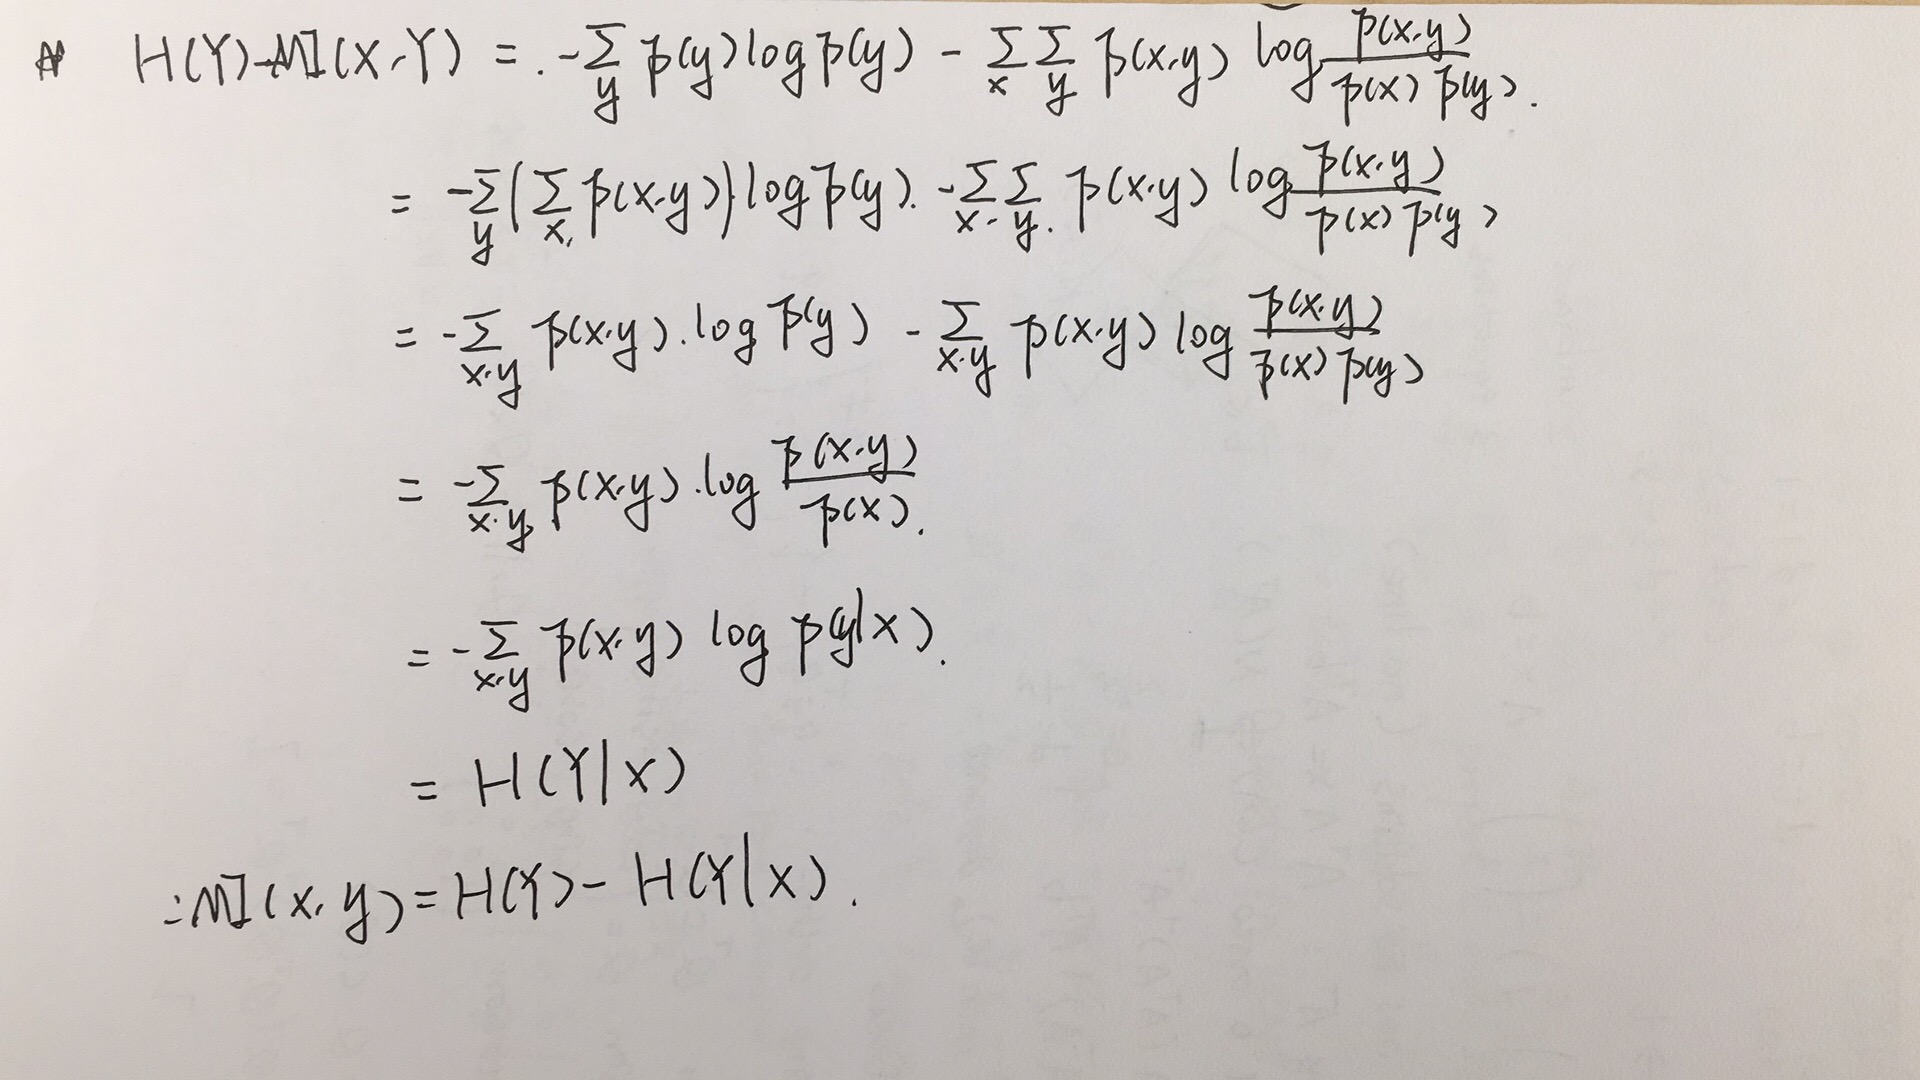 H(Y)-MI(X,Y) = -∑_y p(y) log p(y) - ∑_x ∑_y p(x,y) log p(x,y) / p(x) p(y).
= -∑_y (∑_x p(x,y)) log p(y) - ∑_x ∑_y p(x,y) log p(x,y) / p(x) p(y)
= -∑_{x,y} p(x,y) · log p(y) - ∑_{x,y} p(x,y) log p(x,y) / p(x) p(y)
= -∑_{x,y} p(x,y) · log p(x,y) / p(x).
= -∑_{x,y} p(x,y) log p(y|x).
= H(Y|X)
∴ MI(x,y) = H(Y) - H(Y|X).